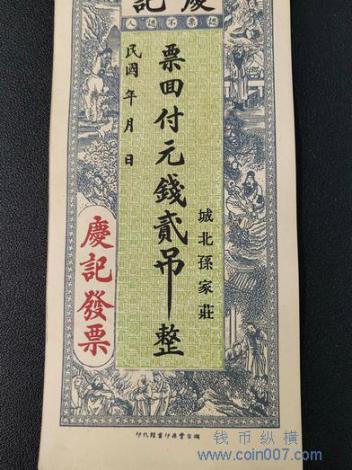 慶記
認票不認人
城北孫家莊
票回付元錢貳吊整
民國年月日
慶記發票
钱币纵横
www.coin007.com